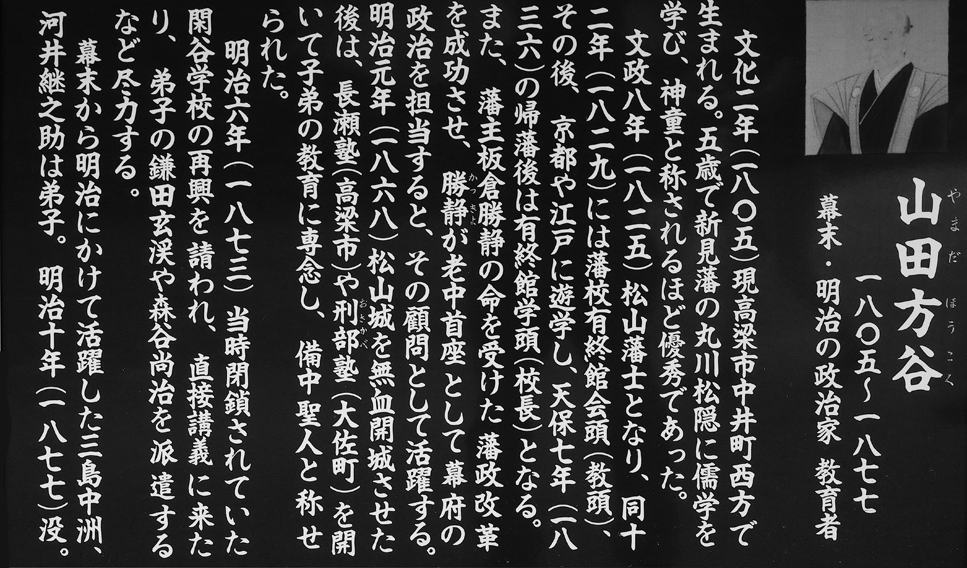 山田方谷
やまだ ほうこく
一八〇五〜一八七七
幕末・明治の政治家 教育者
文化二年(一八〇五)現高梁市中井町西方で
生まれる。五歳で新見藩の丸川松隠に儒学を
学び、神童と称されるほど優秀であった。
文政八年(一八二五)松山藩士となり、同十
二年(一八二九)には藩校有終館会頭(教頭)、
その後、京都や江戸に遊学し、天保七年(一八
三六)の帰藩後は有終館学頭(校長)となる。
また、藩主板倉勝静の命を受けた藩政改革
を成功させ、勝静が老中首座として幕府の
かつきよ
政治を担当すると、その顧問として活躍する。
明治元年(一八六八)松山城を無血開城させた
後は、長瀬塾(高梁市)や刑部塾(大佐町)を開
おさかべ
いて子弟の教育に専念し、備中聖人と称せ
られた。
明治六年(一八七三)当時閉鎖されていた
閑谷学校の再興を請われ、直接講義に来た
り、弟子の鎌田玄渓や森谷尚治を派遣する
など尽力する。
幕末から明治にかけて活躍した三島中洲、
河井継之助は弟子。明治十年(一八七七)没。